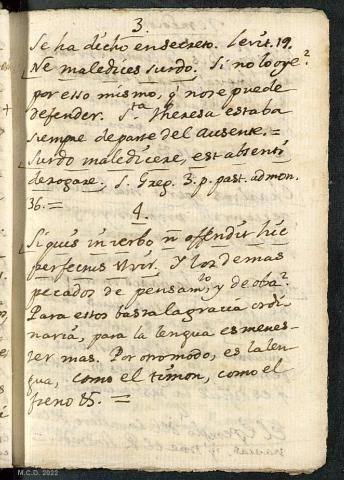 3.
Se ha dicho en secreto. Levit. 19.
Ne maledices surdo. Si no lo oye?
por esso mismo, q̃ no se puede
defender. S.ta Theresa estaba
siempre de parte del Ausente. =
surdo maledicere, est absenti
derogare. S. Greg. 3. p. past. admon.
36. =
4.
Si quis in verbo ñ offendit hic
perfectus vir. Y los demas
pecados de pensam.to, y de oba?
Para estos basta la gracia ordi
naria, para la lengua es menes-
ter mas. Por otro modo, es la len-
gua, como el timon, como el
freno &. =
M.C.D. 2022